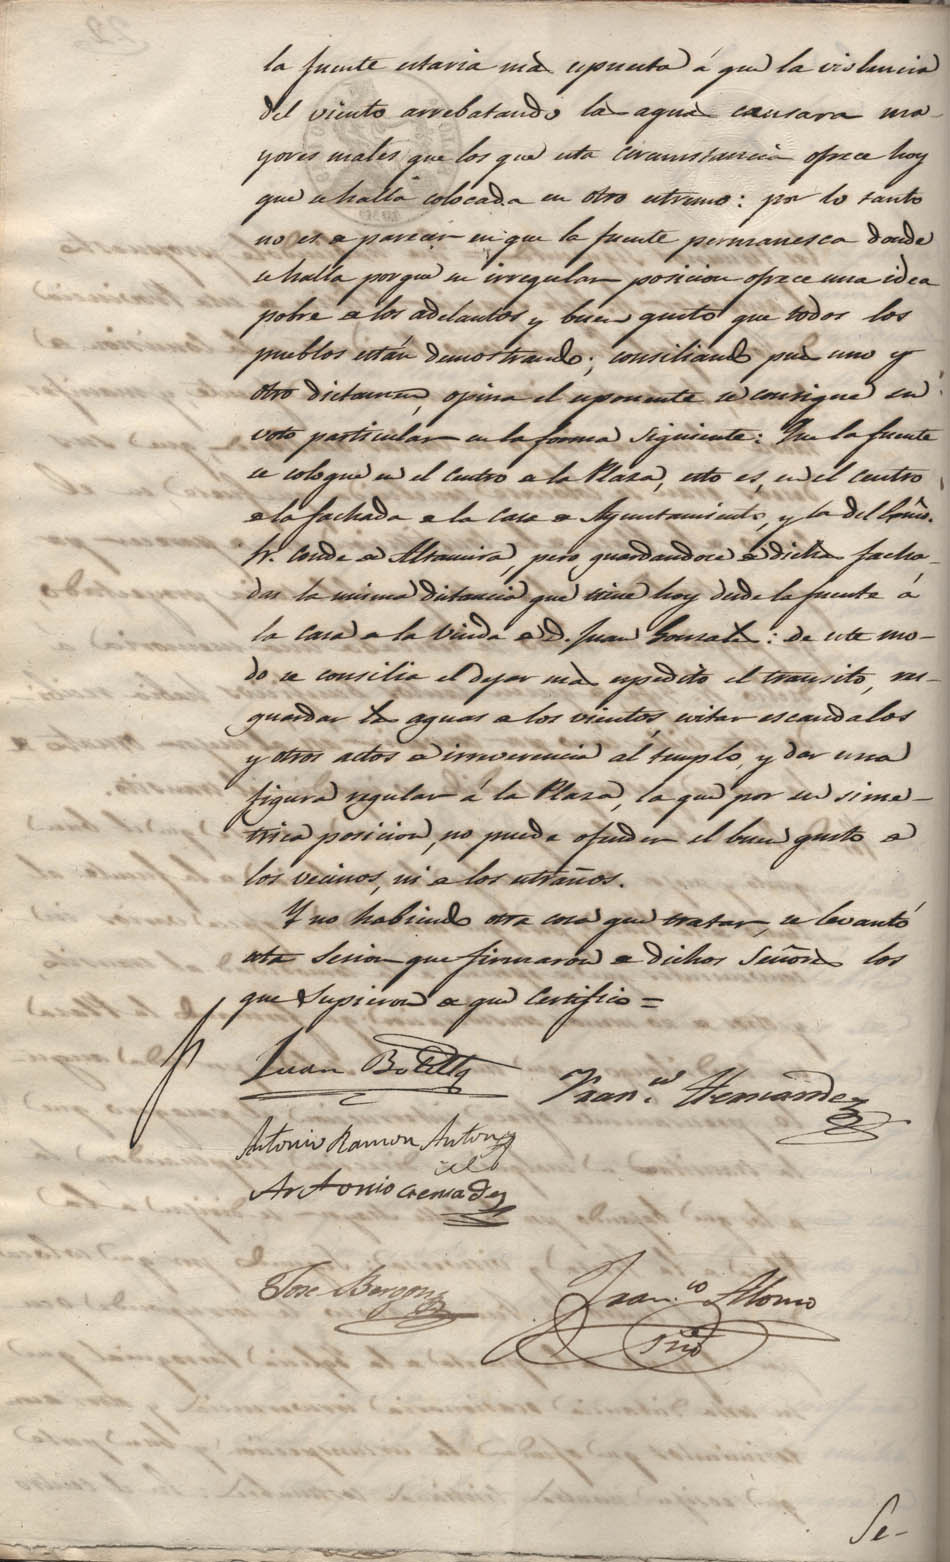 la fuente estaria mas espuesta á que la violencia
del viento arrebatando las aguas causara ma-
yores males que los que esta circunstancia ofrece hoy
que se halla colocada en otro estremo: por lo tanto
no es de parecer en que la fuente permanesca donde
se halla porque su irregular posicion ofrece una idea
pobre de los adelantos y buen gusto que todos los
pueblos están demostrando; consiliando pues uno y
otro dictamen, opina el esponente se consigne su
voto particular en la forma siguiente: Que la fuente
se coloque en el centro de la Plasa, esto es, en el centro
de la fachada de la casa de Ayuntamiento, y la del Exmo.
Sr. Conde de Altamira, pero guardandoce de dichas facha-
das la misma distancia que tiene hoy desde la fuente á
la casa de la Viuda de D. Juan Gonsalez: de este mo-
do se consilia el dejar mas espedito el transito, res-
guardar las aguas de los vientos, evitar escandalos
y otros actos de irreverencia al templo, y dar una
figura regular á la Plasa, la que por su sime-
trica posicion, no puede ofender el buen gusto de
los vecinos, ni de los estraños.
Y no habiendo otra cosa que tratar, se levantó
esta sesion que firmaron de dichos Señores los
que Supieron de que Certifico =
Juan Botella
Fran.co Hernandez
Antonio Ramon Anton
Antonio cremadez
Jose Burgos
Fran.co Alonso
Srio
Se-